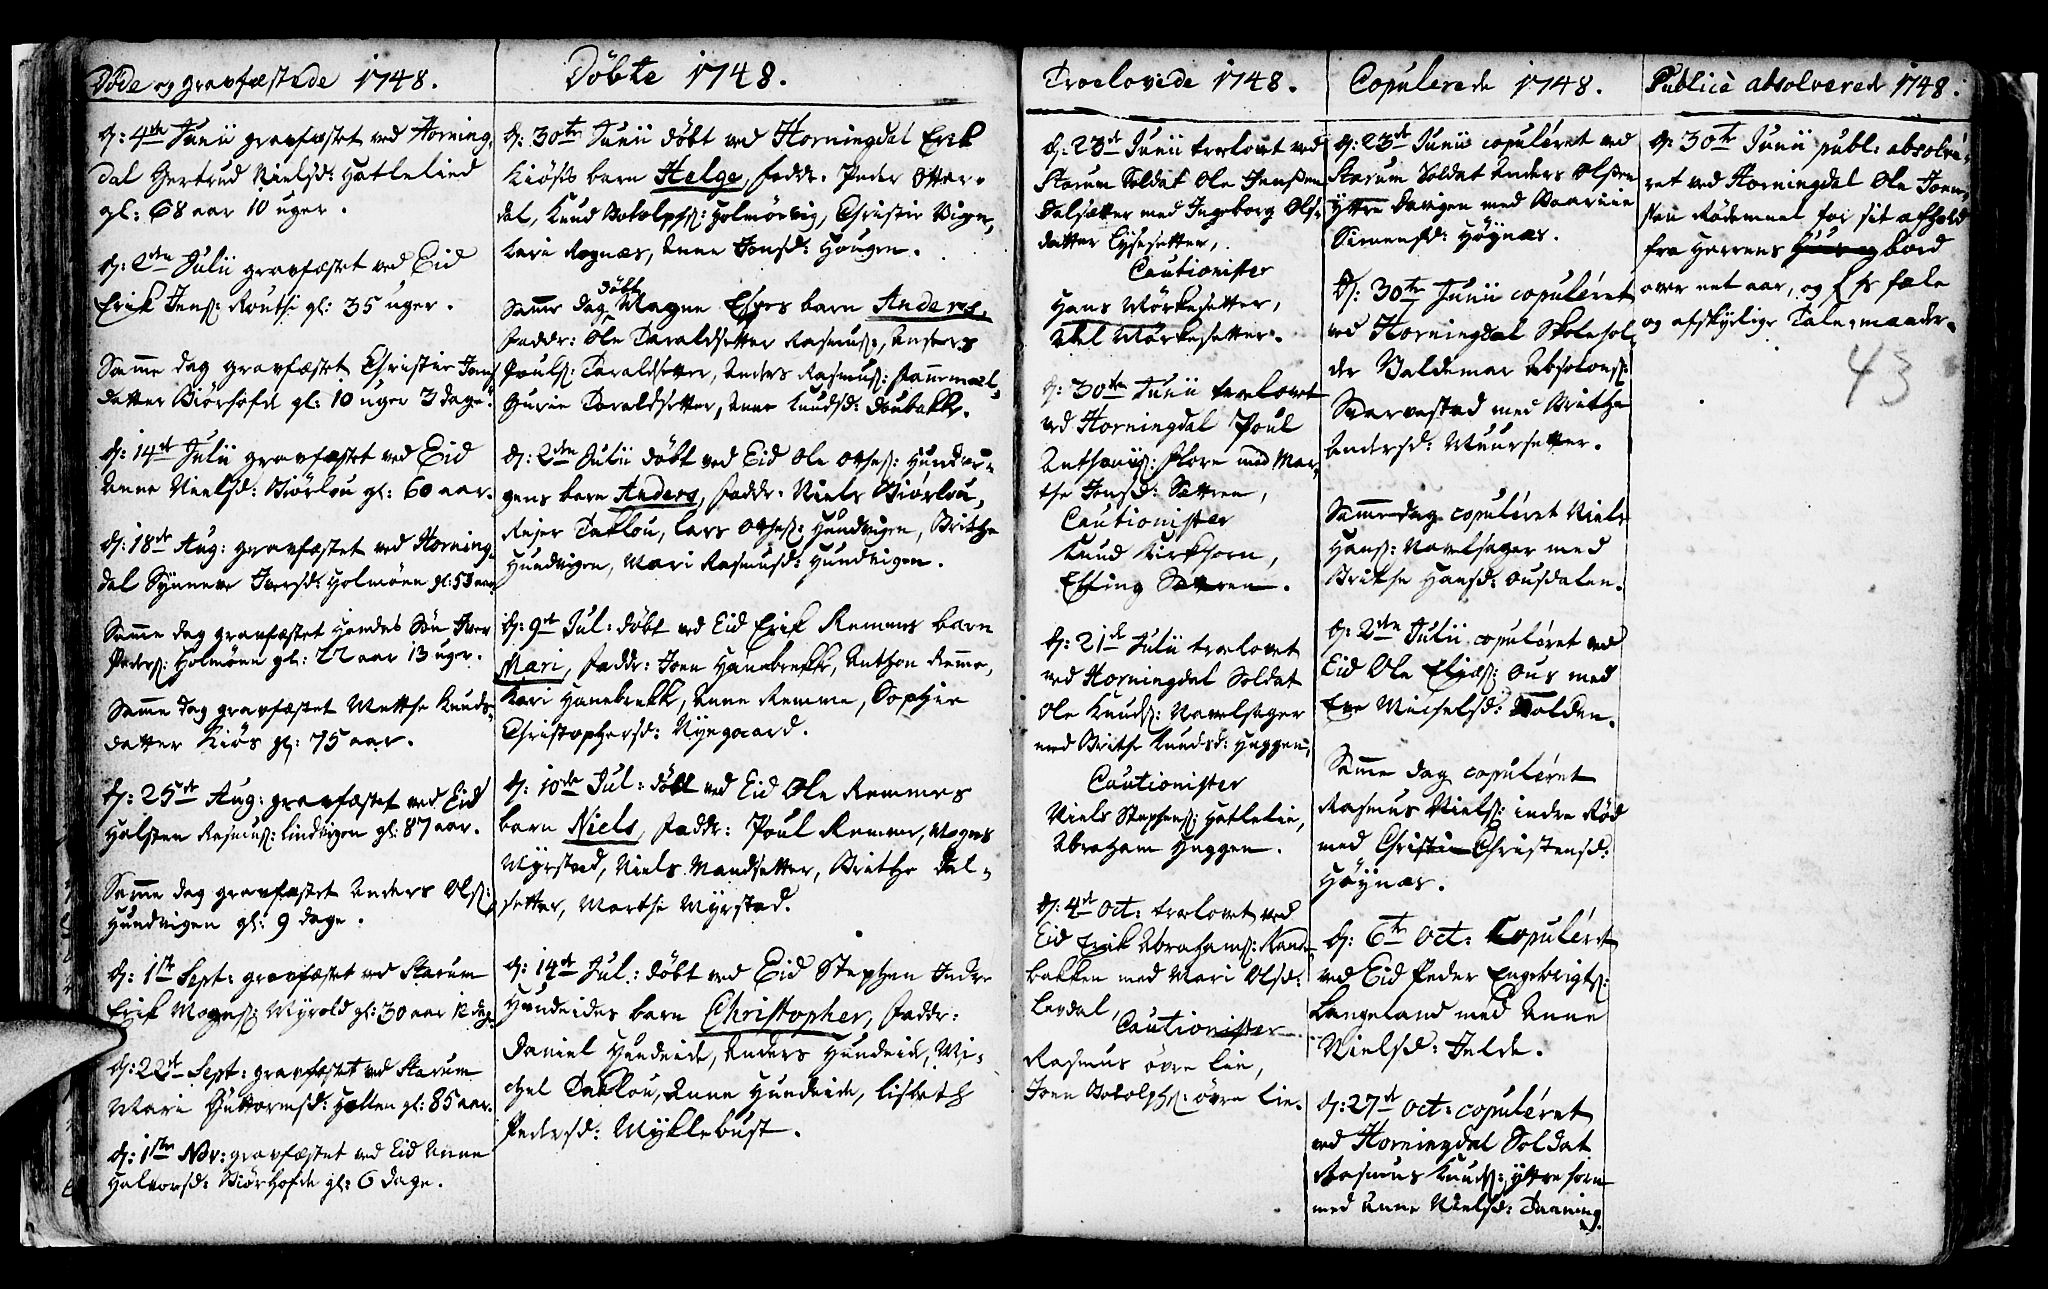 Døde og gravfæstede 1748.
d: 4de Junii gravfæstet ved Horning,
dal Gertrud Nielsd: Hatlelied
gl: 68 aar 10 uger.
d: 2den Julii gravfæstet ved Eid
Erik Jens: gl: 35 uger.
Samme dag gravfæstet Christie Jons
datter Biørhofde gl: 10 uger 3 dage.
d: 14de Julii gravfæstet ved Eid
Anne Nielsd: Biørlou gl: 60 aar.
d: 18de Aug: gravfæstet ved Horning,
dal Synneve Iversd: Holmøen gl: 53 aar
Samme dag gravfæstet Hendes Søn Iver
Peders: Holmøen gl: 22 aar 13 uger.
Samme dag gravfæstet Marthe Knuds
datter Kiøs gl: 75 aar.
d: 25de Aug: gravfæstet ved Eid
Halsten Rasmus: Lindvigen gl: 87 aar.
Samme dag gravfæstet Anders Ols:
Hundvigen gl: 9 dage.
d: 1ste Sept: gravfæstet ved Starum
Erik Mogns: Myrold gl: 30 aar 12 dage
d: 22de Sept: gravfæstet ved Starum
Mari Guttormsd: Hollen gl: 85 aar.
d: 1ste Nov: gravfæstet ved Eid Anne
Halvorsd: Biørhofde gl: 6 dage.
Døbte 1748.
d: 30te Junii døbt ved Horningdal Erik
Kiøses barn Helge, faddr. Peder Otter-
dal, Knud Botolphs: Holmøvig, Christie Vigen,
Kari Rognæs, Anne Jonsd: Hougen.
Samme dag døbt Magne Espes barn Anders,
Faddr: Ole Taraldsetter Rasmus:, Anders
Pouls: Taraldsetter, Anders Rasmus:
Gurie Taraldsetter, Anne Knudsd: Doubakke.
d: 2den Julii døbt ved Eid Ole Hundvi-
gens barn Anders, Faddr: Niels Biørlou,
Rejer Taklou, Lars Hundvigen, Brithe
Hundvigen, Mari Rasmusd: Hundvigen.
d: 9de Jul: døbt ved Eid Erik Remmes barn
Mari, Faddr: Joen Hanebrekke, Anthon Remme,
Kari Hanebrekke, Anne Remme, Sophie
Christophersd: Nyegaard.
d: 10de Jul: døbt ved Eid Ole Remmes
barn Niels, Faddr: Poul Remme, Mogens
Myrstad, Niels Mandsetter, Brithe Dal-
setter, Marthe Myrstad.
d: 14de Jul: døbt ved Eid Stephen Indre
Hundeides barn Christopher, Faddr:
Daniel Hundeide, Anders Hundeide, Mi-
chel Taklou, Anne Hundeide, Lisbeth
Pedersd: Myklebust.
Troelovede 1748.
d: 23de Junii trolovet ved
Starum Soldat Ole Jensen
Dalsetter med Ingeborg Ols-
datter Lysesetter,
Cautionister
Hans Mørkesetter,
Abel Mørkesetter.
d: 30te Junii trolovet
ved Horningdal Poul
Anthonis: Flore med Mar,
the Jonsd: Sætren,
Cautionister
Knud Kirkhorn,
Elling Sætren.
d: 21de Julii trolovet
ved Horningdal Soldat
Ole Knuds: Navelsager
med Brithe Knudsd: Heggen,
Cautionister
Niels Stephens: Hatlelie,
Abraham Heggen.
d: 4de Oct: trolovet ved
Eid Erik Abrahams: Rande-
bakken med Mari Olsd:
Levdal,
Cautionister
Rasmus øvre Lie,
Joen Botolphs: øvre Lie.
Copulerede 1748.
d: 23de Junii copuléret ved
Starum Soldat Anders Olsen
Yttre Davgen med Baarnie
Simensd: Høynæs.
d: 30te Junii copuléret
ved Horningdal Skolehol-
der Valdemar Absolons:
Svarvestad med Brithe
Andersd: Muursetter.
Samme dag copuléret Niels
Hans: Navelsager med
Brithe Hansd: Ousdalen.
d: 2den Julii copuléret ved
Eid Ole Elias: Ous med
Eve Michelsd: Tolden.
Samme dag copuléret
Rasmus Niels: indre Rød
med Christin Christensd:
Høynæs.
d: 6te Oct: Copuléret
ved Eid Peder Engebrigts:
Langeland med Anne
Nielsd: Jelde.
d: 27de Oct: copuléret
ved Horningdal Soldat
Rasmus Knuds: Yttrehorn
med Anne Nielsd: Daning.
Publicè absolverede 1748.
d: 30te Junii publ: absolvé-
ret ved Horningdal Ole Joen-
sen Rødemeel for sit afhold
fra Herrens Huus og bord
over eet aar, og
og afskylige Tale-maader.
43